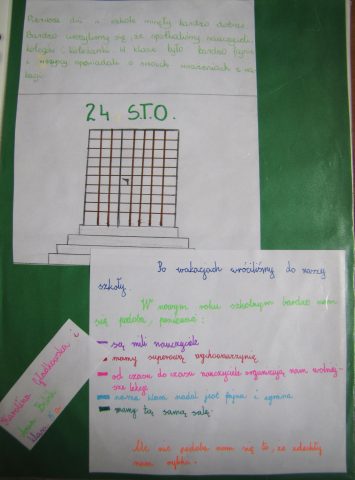 Pierwsze dni w szkole minęły bardzo dobrze.
Bardzo ucieszyłyśmy się, że spotkaliśmy nauczycieli,
kolegów i koleżanki. W klasie było bardzo fajnie
i wszyscy opowiadali o swoich wrażeniach z wa-
kacji.
24 S.T.O.
Po wakacjach wróciliśmy do naszej
szkoły.
W nowym roku szkolnym bardzo nam
się podoba, ponieważ:
- są mili nauczyciele
- mamy superową wychowawczynię
- od czasu do czasu nauczyciele organizują nam wolniej-
sze lekcje
- nasza klasa nadal jest fajna i zgrana
- mamy tą samą salę.
Ale nie podoba nam się to, że zdechły
nam rybki.
Karolina i
Ania
klasa